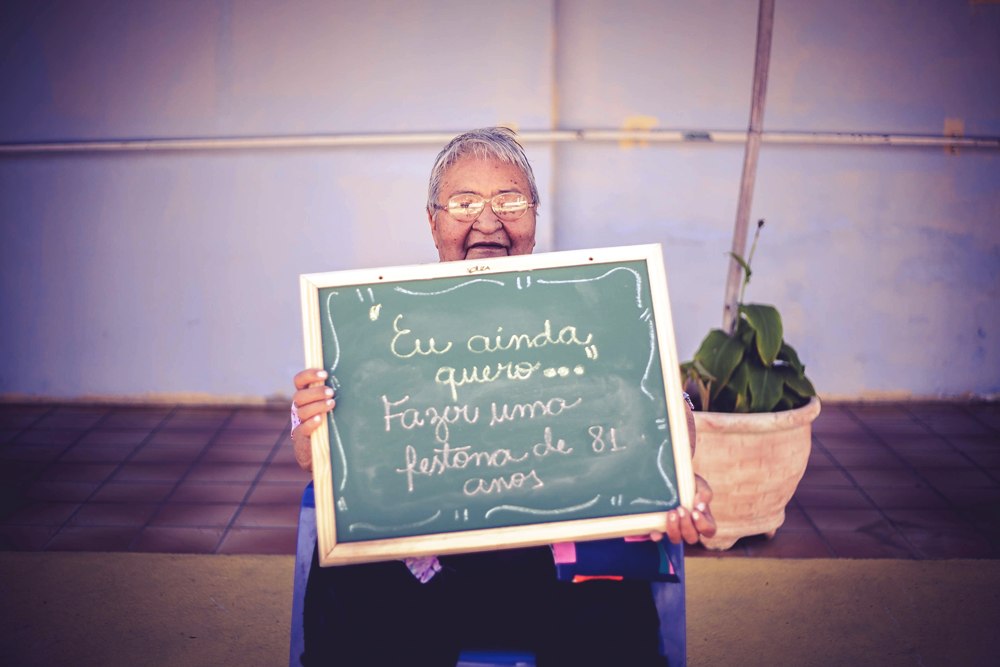 "Eu ainda
quero..."
Fazer uma
festona de 81
anos